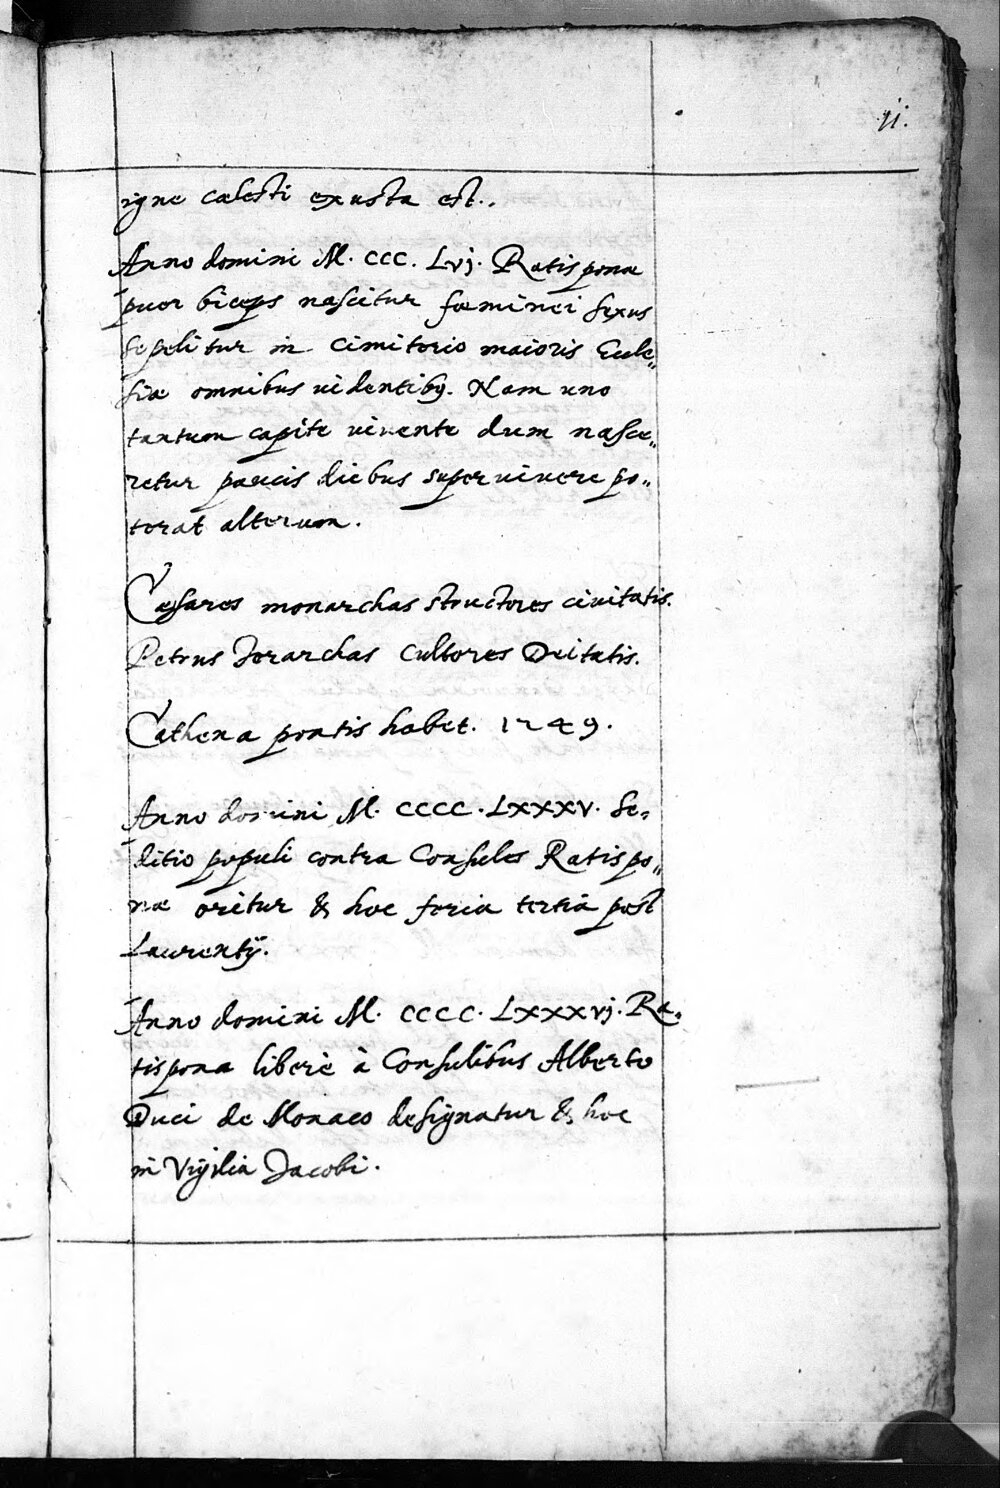 11.
igne cælesti exusta est.
Anno domini M. CCC. Lvj. Ratisponæ
puer biceps nascitur fœminei sexus
sepelitur in cimiterio maioris Eccle„
siæ omnibus uidentibꝫ. Nam uno
tantum capite uiuente dum nasce„
retur paucis diebus superuiuere po„
terat alterum.
Cæsares monarchas structores ciuitatis.
Petrus Jerarchas Cultores Deitatis.
Cathena pontis habet. 1249.
Anno domini M. CCCC. LXXXV. Se„
ditio populi contra Consules Ratispo„
næ oritur & hoc feria tertia post
Laurentij.
Anno domini M. CCCC. LXXXvj. Ra„
tispona liberè à Consulibus Alberto
Duci de Monaco designatur & hoc
in Vigilia Jacobi.